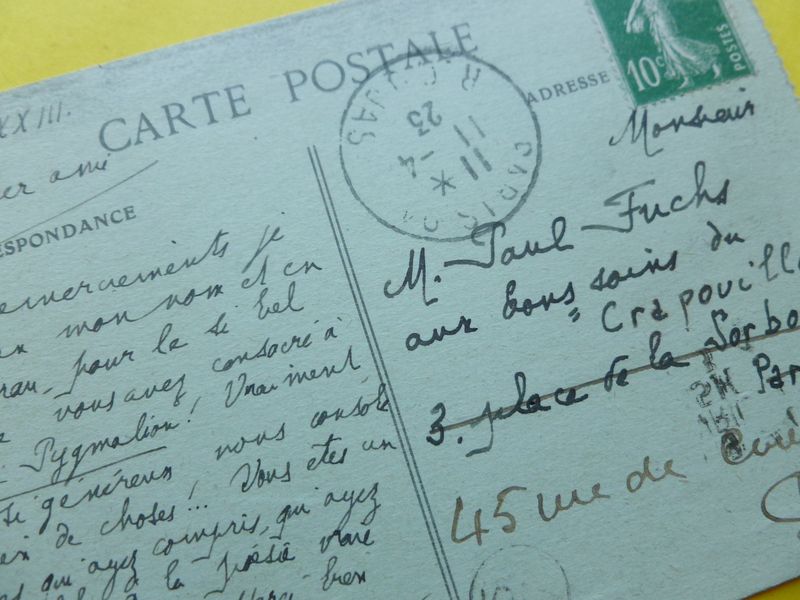 XXIII.
CARTE POSTALE
ADRESSE
10c POSTES
PARIS
R. CUJAS
11 -4
11
23
ami
ESPONDANCE
je
mon nom et en
pour le si bel
vous avez consacré à
Pygmalion! Vraiment
si généreux nous console
de choses!.. Vous êtes un
qui ayez compris, qui ayez
à la poésie vraie
bien
Monsieur
M. Paul Fuchs
aux bons soins du
"Crapouill
3. place de la Sorbo
Par
45 rue de